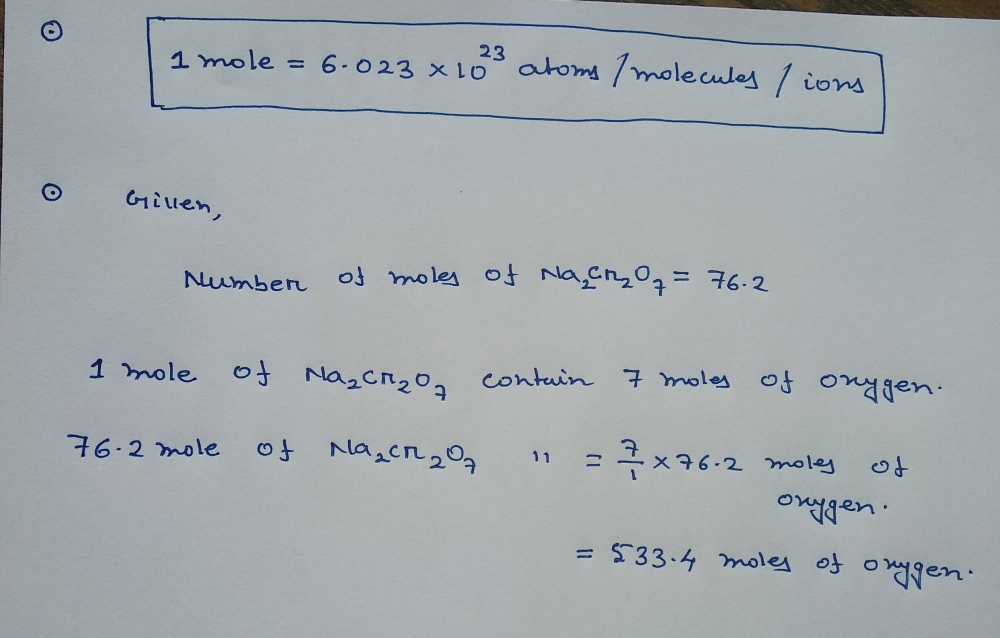 1 mole = 6.023 × 10²³ atoms / molecules / ions
Given,
Number of moles of Na₂Cr₂O₇ = 76.2
1 mole of Na₂Cr₂O₇ contain 7 moles of oxygen.
76.2 mole of Na₂Cr₂O₇ " = 7/1 × 76.2 moles of
oxygen.
= 533.4 moles of oxygen.